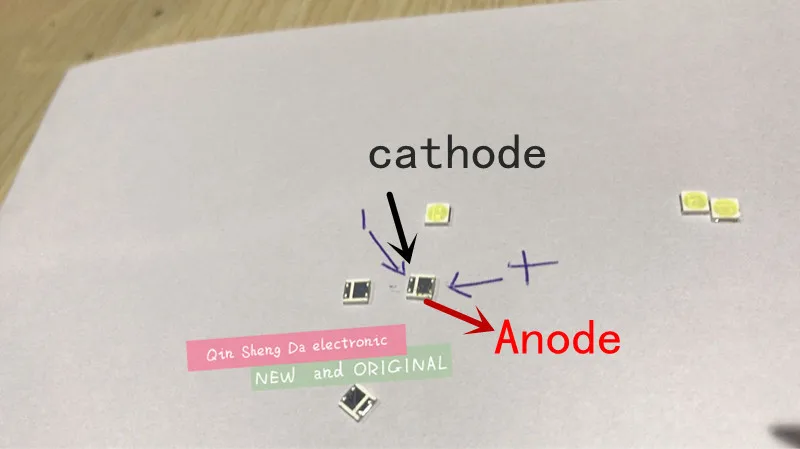 cathode
+
Anode
Qin Sheng Da electronic
NEW and ORIGINAL